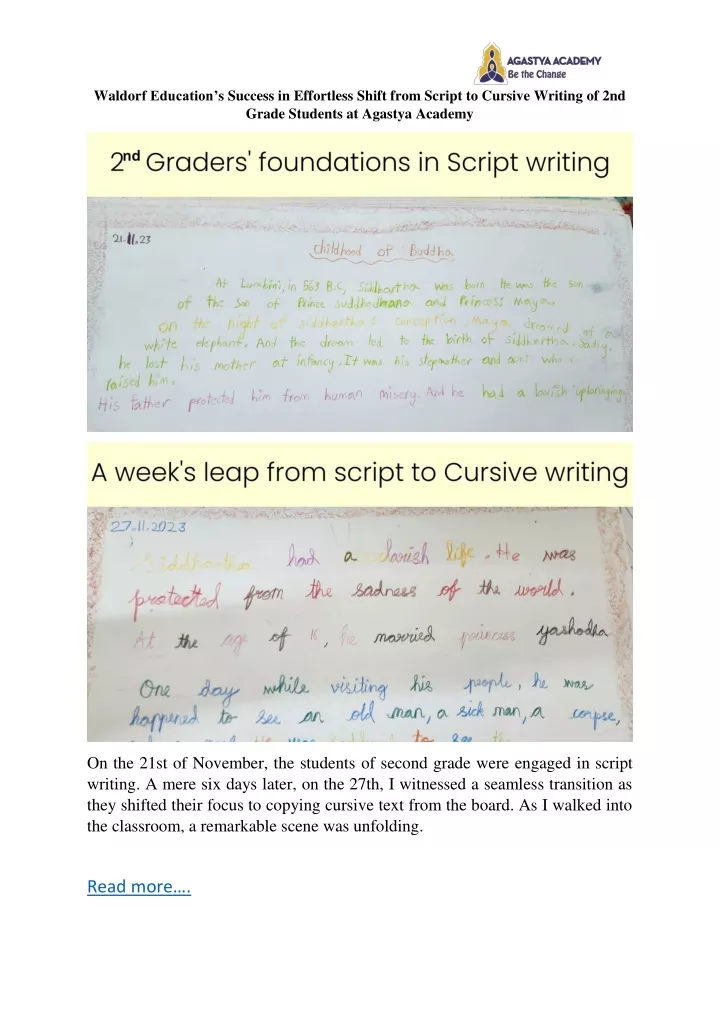 AGASTYA ACADEMY
Be the Change
Waldorf Education's Success in Effortless Shift from Script to Cursive Writing of 2nd
Grade Students at Agastya Academy
2nd Graders' foundations in Script writing
21.11.23
Childhood of Buddha
At Lumbini, in 563 B.C, Siddhartha was born he was the son
of the son of Prince Suddhodhana and Princess Maya.
on the night of siddhartha's conception, Maya dreamed of a
white elephant. And the dream led to the birth of siddhartha. Sadly,
he lost his mother at infancy. It was his stepmother and aunt who
raised him.
His father protected him from human misery. And he had a lavish upbringing
A week's leap from script to Cursive writing
27.11.2023
Siddhartha had a lavish life. He was
protected from the sadness of the world.
At the age of 16, he married princess yashodha
One day while visiting his people, he was
happened to see an old man, a sick man, a corpse,
to see the
On the 21st of November, the students of second grade were engaged in script
writing. A mere six days later, on the 27th, I witnessed a seamless transition as
they shifted their focus to copying cursive text from the board. As I walked into
the classroom, a remarkable scene was unfolding.
Read more….